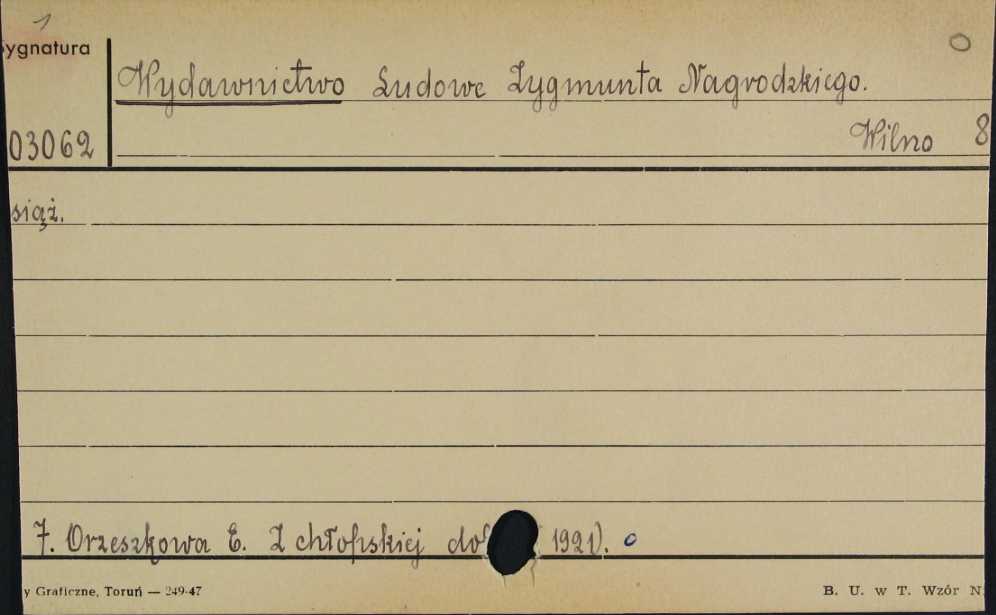 1
Sygnatura
Wydawnictwo Ludowe Zygmunta Nagrodzkiego.
03062
Wilno 8
siąż.
7. Orzeszkowa E. Z chłopskiej 1921).
y Graficzne, Toruń — 249-47
B. U. w T. Wzór N